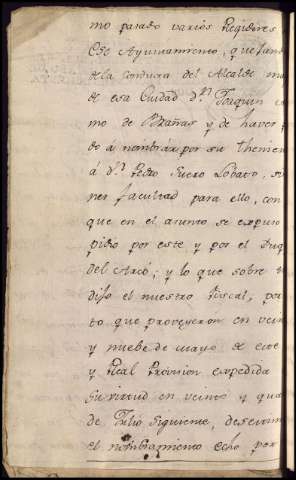 mo pasado varios Regidores
ese Ayuntamiento, quejand
de la cordura del Alcalde ma
de esa Ciudad dn. Joaquin
mo de Brañas y de haver
do á nombrar por su Thenien
á dn. Pedro Suero Lobato, si
ner facultad para ello, con
que en el asunto se expuso
pidio por este y por el
del Arco; y lo que sobre
dijo el nuestro Fiscal, por
to que proveyeron en vein
y nuebe de mayo de este
y Real Provision expedida
su virtud en veinte y qua
de Julio siguiente, desestim
el nombramiento echo por